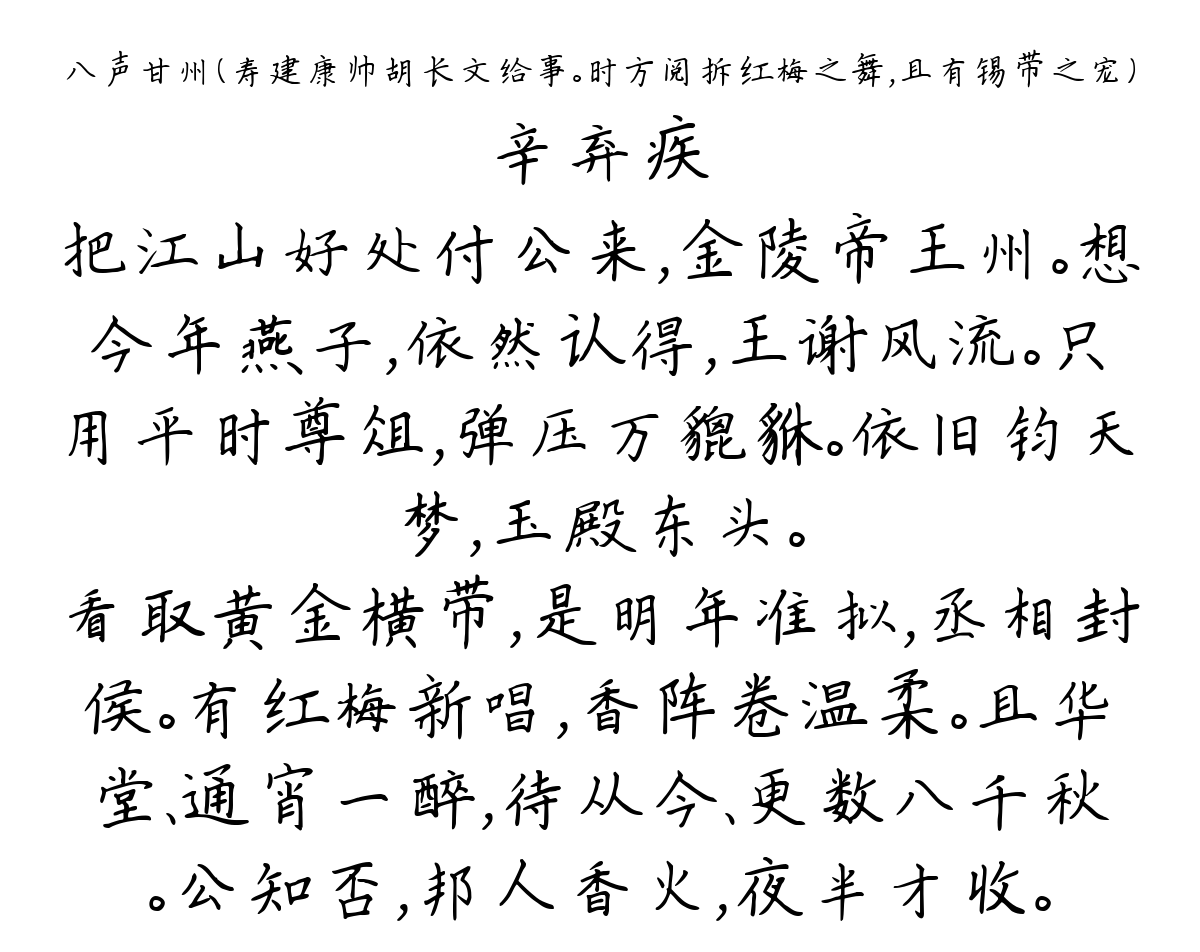 八声甘州(寿建康帅胡长文给事。时方阅拆红梅之舞,且有锡带之宠)
辛弃疾
把江山好处付公来,金陵帝王州。想
今年燕子,依然认得,王谢风流。只
用平时尊俎,弹压万貔貅。依旧钧天
梦,玉殿东头。
看取黄金横带,是明年准拟,丞相封
侯。有红梅新唱,香阵卷温柔。且华
堂、通宵一醉,待从今、更数八千秋
。公知否,邦人香火,夜半才收。